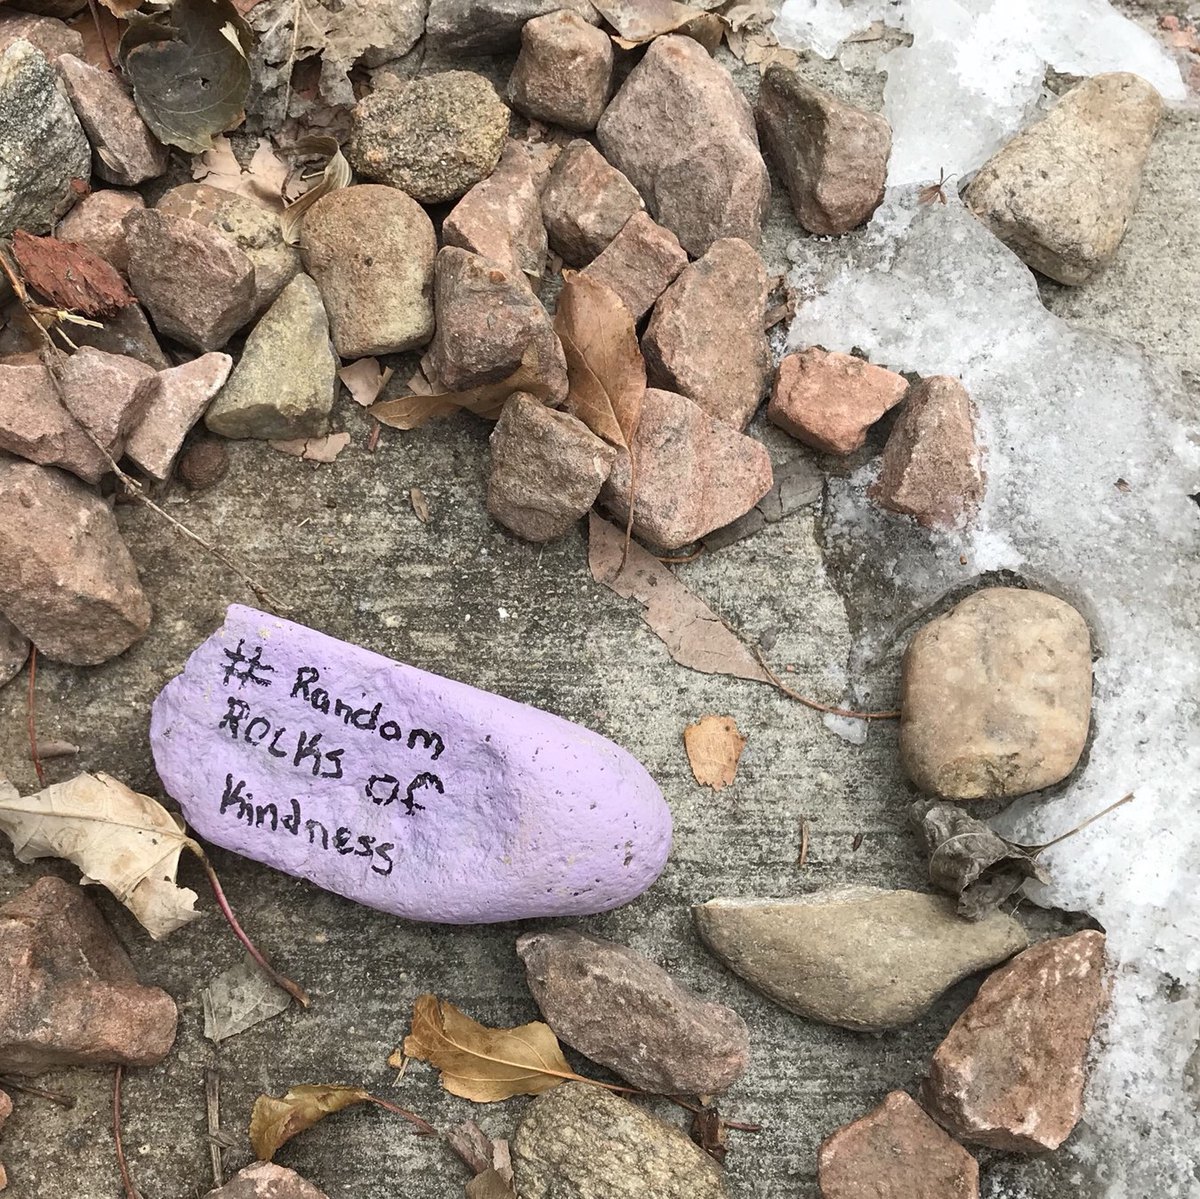 # Random
Rocks of
Kindness